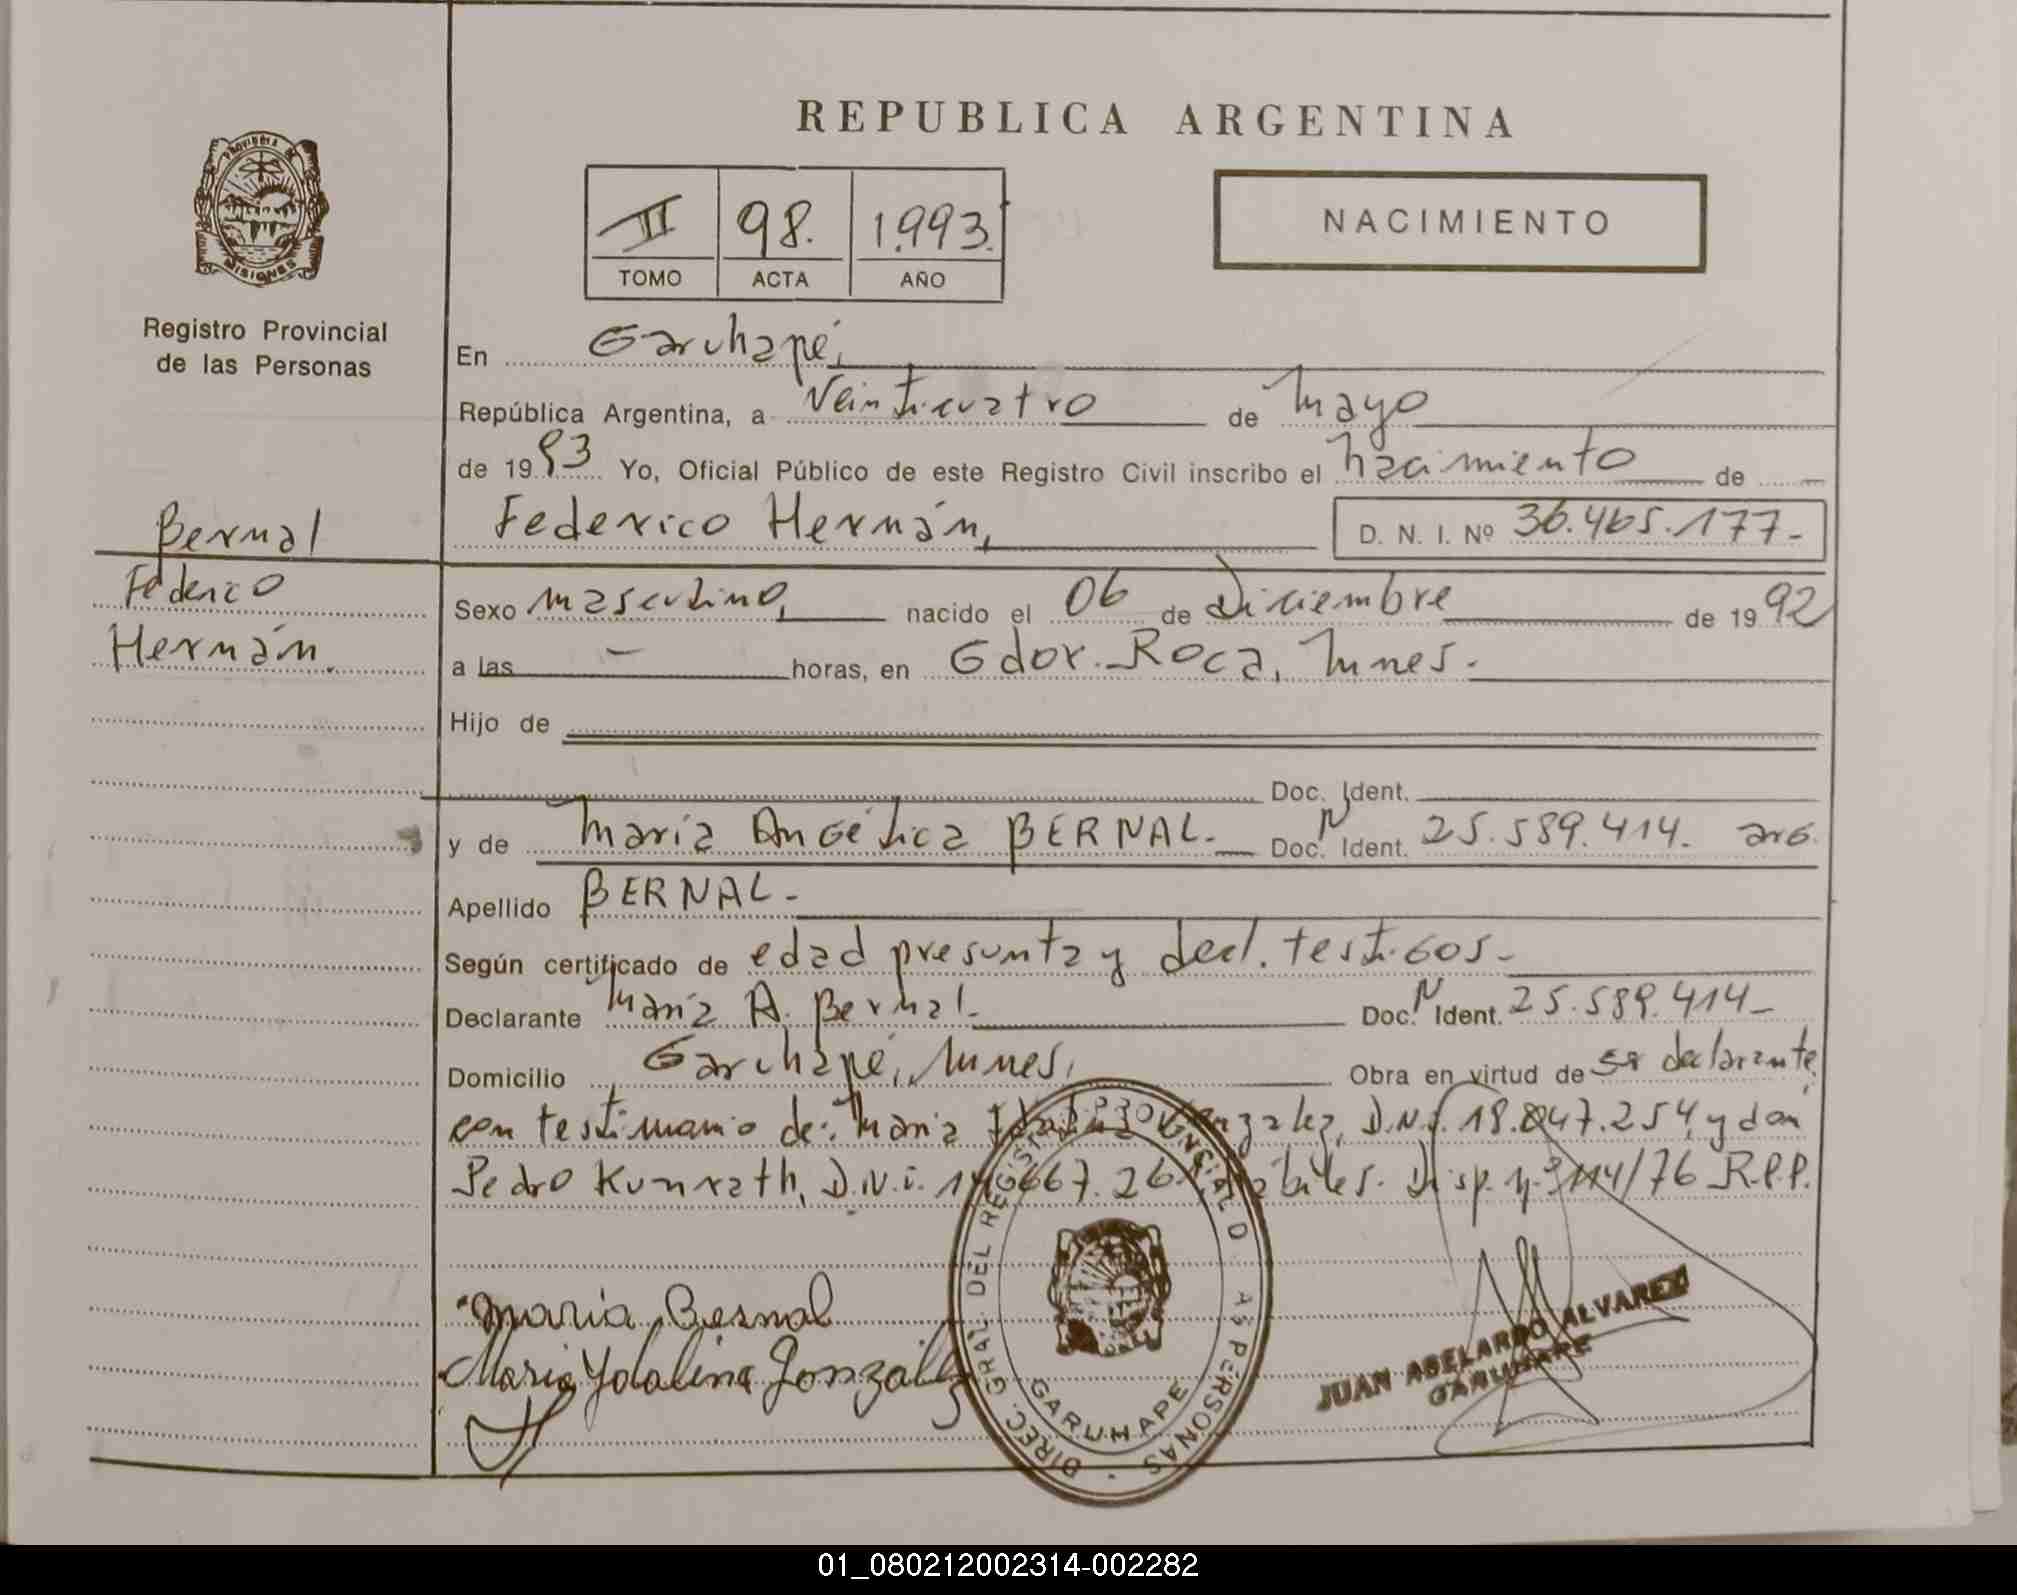 REPUBLICA ARGENTINA
PROVINCIA DE MISIONES
Registro Provincial
de las Personas
II 98. 1.993.
TOMO ACTA AÑO
NACIMIENTO
En Garuhapé,
República Argentina, a Veinticuatro de Mayo
de 1993 Yo, Oficial Público de este Registro Civil inscribo el nacimiento de
Bernal
Federico
Hernán.
Federico Hernán, D. N. I. Nº 36.465.177-
Sexo masculino, nacido el 06 de Diciembre de 1992
a las - horas, en Gdor. Roca, Mnes.
Hijo de
Doc. Ident.
y de María Angélica BERNAL- Doc. N Ident. 25.589.414. arg.
Apellido BERNAL-
Según certificado de edad presunta y decl. testigos-
Declarante María A. Bernal- Doc. N Ident. 25.589.414-
Domicilio Garuhapé, Mnes, Obra en virtud de ser declarante,
con testimonio de: María D.N.I. 18.847.254, y don
Pedro Kunrath, D.N.I. Disp. nº 114/76 R.P.P.
Maria Bernal
Maria Ydalina Gonzalez
DIREC. GRAL. DEL REGISTRO PROVINCIAL D AS PERSONAS
GARUHAPE
JUAN ABELARDO ALVAREZ
GARUHAPE
01_080212002314-002282